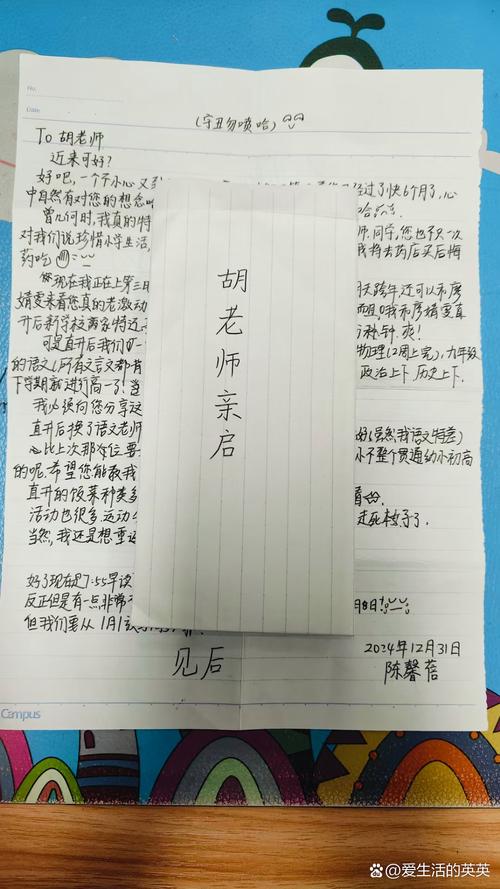 No.
Date
(字丑勿喷哈)
To 胡老师
近来可好?
好吧,一个不小心又
经过了快6个月了,心
中自然有对您的想念
曾几何时,我真的特
师,同学,您也不只一次
对我们说珍惜小学生活,
我将去药店买后悔
药吃
您现在我正在上第三
天跨年,还可以和廖
婧雯来看您真的老激动
而且!我和廖婧雯真
开后新学校离家特近
秒钟,爽!
可是直升后我们
物理(2周上完),九年级
的语文(所有文言文都背
政治上下,历史上下,
下学期就进行高一了!当
我必须向您分享这
直升后换了语文老师
好(虽然我语文特差)
比上次那位要
小不整个贯通幼小初高
的呢,希望您能教我
直升的饭菜种类多
活动也很多,运动
当然,我还是想重
好了现在是7:55早读
反正但是有一点非常
8日
但我们要从1月1
见后
2024年12月31日
陈馨蓓
胡老师亲启
Campus
@爱生活的英英